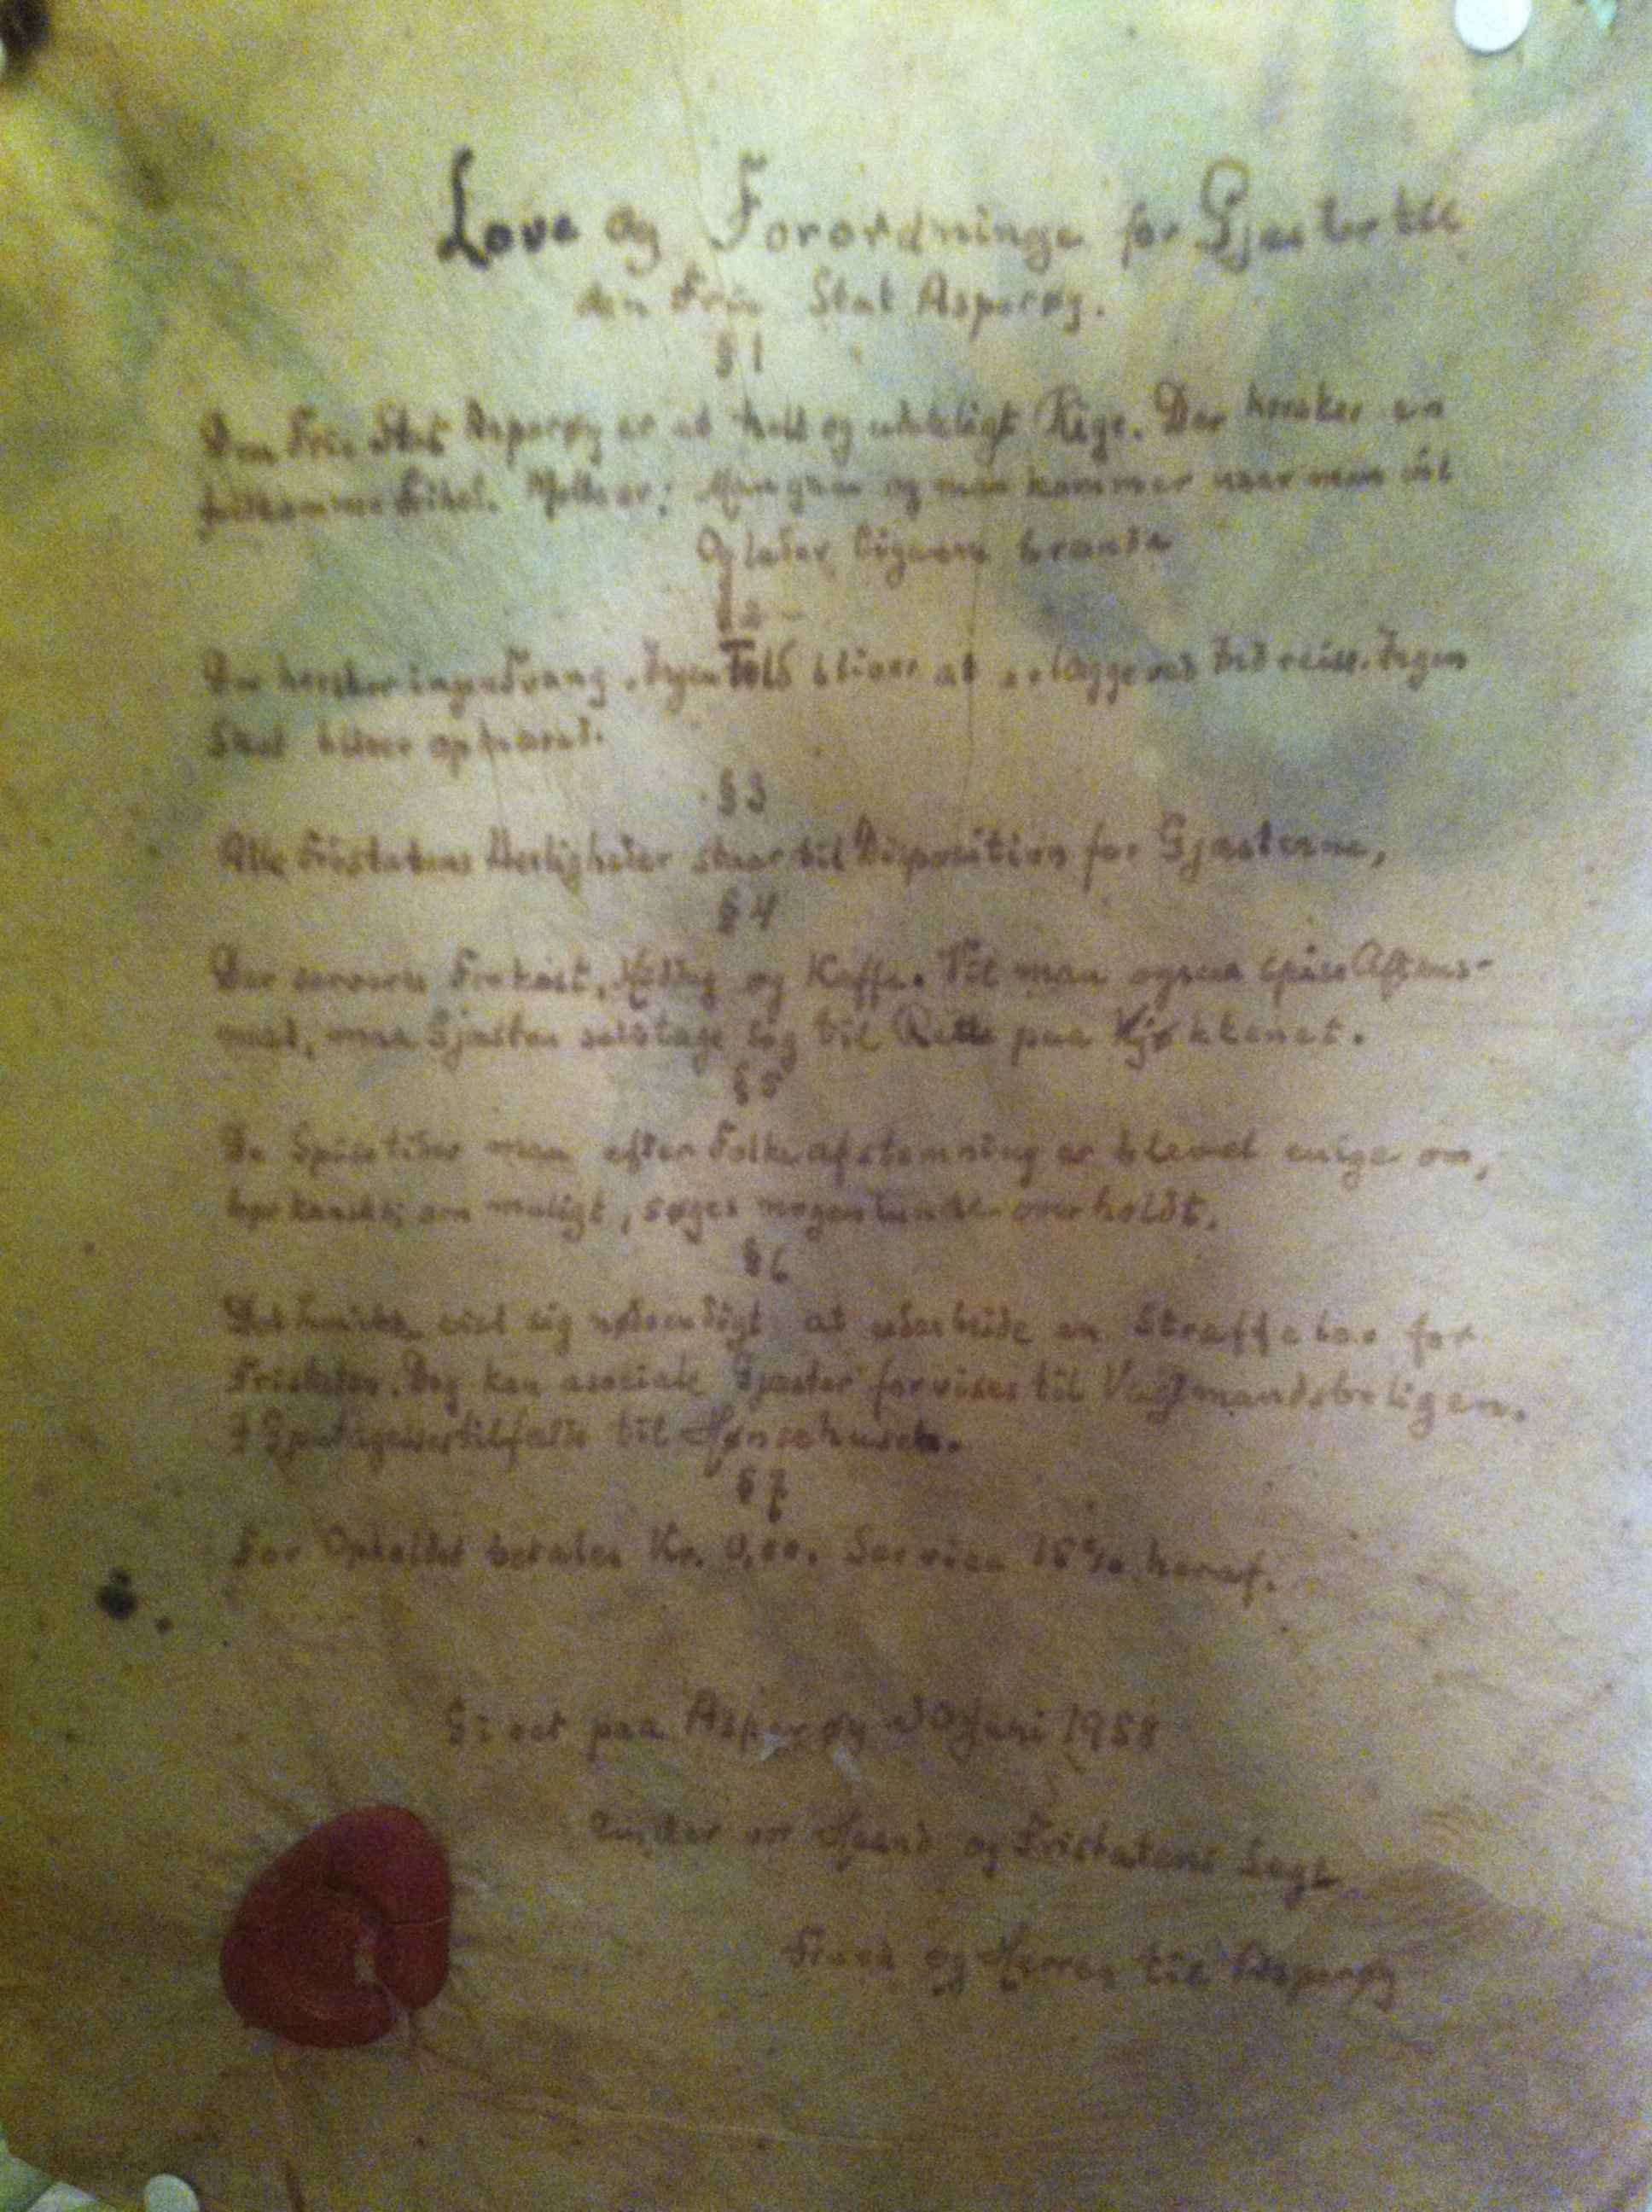 Love og Forordninge for Gjester till
den Frie Stat Asperøy.
§1
Den Frie Stat Asperøy er et helt og udeleligt Rige. Der hersker en
Man gaar og man kommer naar man vil
Og lader
§2
Der hersker ingen Tvang. Ingen Told bliver at erlægge ved Indreise. Ingen
Skat bliver opkrævet.
§3
Alle Fristatens Herligheder staar til Disposition for Gjæsterne,
§4
Der serveres Frokost, Middag og Kaffe. Vil man ogsaa spise Aftens-
mad, maa Gjæsten selv tage sig til Rette paa Kjøkkenet.
§5
De Spisetider man efter Folkeafstemning er blevet enige om,
bør kanskej om muligt, søges nogenlunde overholdt.
§6
Det har ikke vist sig nødvendigt at udarbeide en Straffelov for
Fristaten. Dog kan asociale Gjæster forvises til Vagtmandsboligen.
I Gjentagelsestilfælde til Hønsehuset.
§7
For Opholdet betales Kr. 0,00. Service 15% heraf.
Givet paa Asperøy 30 Juni 1958
Under vor Haand og Fristatens Segl
og Herren til Asperøy